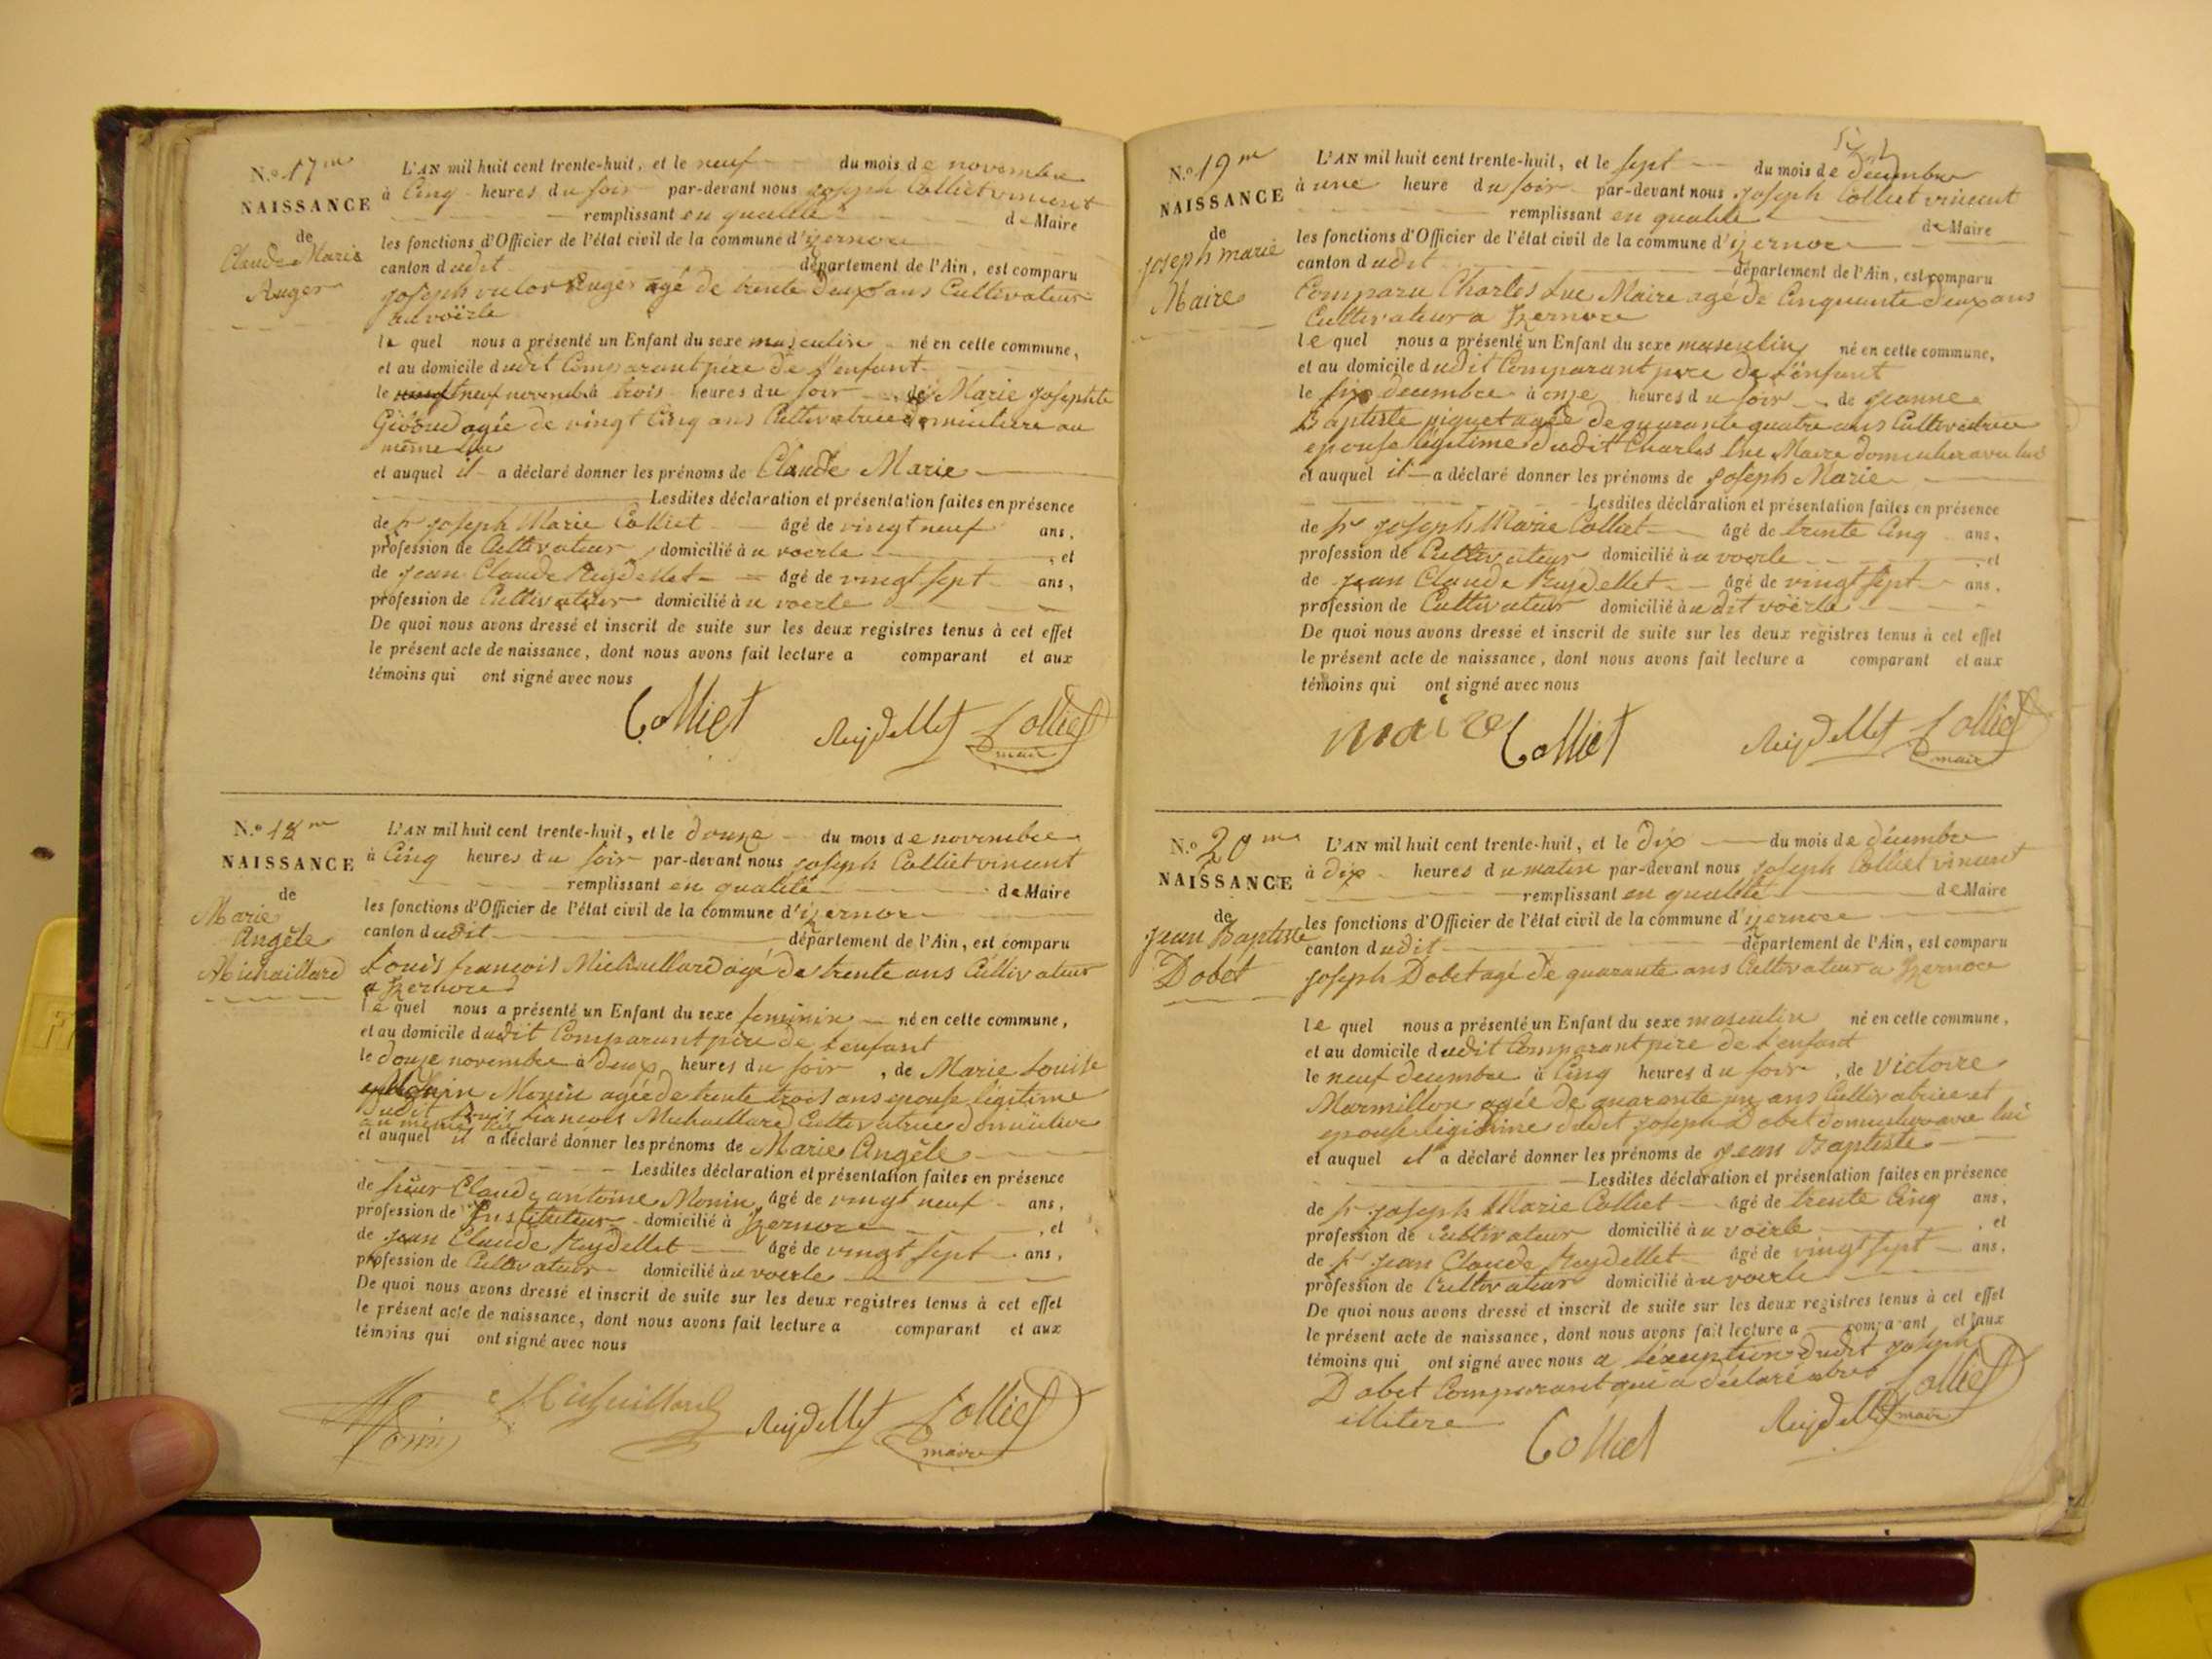 N.º 17me
NAISSANCE
de
Claude Marie
Auger
L'AN mil huit cent trente-huit, et le neuf du mois de novembre
à Cinq heures du soir par-devant nous joseph Colliet vincent
remplissant en qualité de Maire
les fonctions d'Officier de l'état civil de la commune d'izernore
canton dudit département de l'Ain, est comparu
joseph victor Auger agé de trente deux ans Cultivateur
au voërle
le quel nous a présenté un Enfant du sexe masculin né en cette commune,
et au domicile dudit Comparant père de l'enfant
le neuf novembre à trois heures du soir de Marie josephte
agée de vingt Cinq ans Cultivatrice domiciliée au
même lieu
et auquel il a déclaré donner les prénoms de Claude Marie
Lesdites déclaration et présentation faites en présence
de sr joseph Marie Colliet âgé de vingt neuf ans,
profession de Cultivateur, domicilié au voërle, et
de jean Claude Reydellet âgé de vingt sept ans,
profession de Cultivateur domicilié au voërle
De quoi nous avons dressé et inscrit de suite sur les deux registres tenus à cet effet
le présent acte de naissance, dont nous avons fait lecture a comparant et aux
témoins qui ont signé avec nous
Colliet Reydellet Colliet
maire
N.º 18me
NAISSANCE
de
Marie
Angèle
Michaillard
L'AN mil huit cent trente-huit, et le douze du mois de novembre
à Cinq heures du soir par-devant nous joseph Colliet vincent
remplissant en qualité de Maire
les fonctions d'Officier de l'état civil de la commune d'izernore
canton dudit département de l'Ain, est comparu
Louis françois Michaillard agé de trente ans Cultivateur
a Izernore
le quel nous a présenté un Enfant du sexe feminin né en cette commune,
et au domicile dudit Comparant père de l'enfant
le douze novembre à deux heures du soir, de Marie Louise
Monin agée de trente trois ans epouse légitime
dudit Louis francois Michaillard Cultivatrice domiciliée
au même lieu
et auquel il a déclaré donner les prénoms de Marie Angèle
Lesdites déclaration et présentation faites en présence
de sieur Claude antoine Monin, âgé de vingt neuf ans,
profession de Instituteur domicilié à Izernore, et
de jean Claude Reydellet âgé de vingt sept ans,
profession de Cultivateur domicilié au voërle
De quoi nous avons dressé et inscrit de suite sur les deux registres tenus à cet effet
le présent acte de naissance, dont nous avons fait lecture a comparant et aux
témoins qui ont signé avec nous
Monin Michaillard Reydellet Colliet
maire
N.º 19me
NAISSANCE
de
joseph marie
Maire
L'AN mil huit cent trente-huit, et le sept du mois de décembre
à une heure du soir par-devant nous joseph Colliet vincent
remplissant en qualité de Maire
les fonctions d'Officier de l'état civil de la commune d'izernore
canton dudit département de l'Ain, est comparu
Comparu Charles Luc Maire agé de Cinquante deux ans
Cultivateur a Izernore
le quel nous a présenté un Enfant du sexe masculin né en cette commune,
et au domicile dudit Comparant pere de l'enfant
le six decembre à onze heures du soir de jeanne
Baptiste piquet agée de quarante quatre ans Cultivatrice
epouse légitime dudit Charles Luc Maire domiciliée avec lui
et auquel il a déclaré donner les prénoms de joseph Marie
Lesdites déclaration et présentation faites en présence
de sr joseph Marie Colliet âgé de trente Cinq ans,
profession de Cultivateur domicilié au voërle, et
de jean Claude Reydellet âgé de vingt sept ans,
profession de Cultivateur domicilié audit voërle
De quoi nous avons dressé et inscrit de suite sur les deux registres tenus à cet effet
le présent acte de naissance, dont nous avons fait lecture a comparant et aux
témoins qui ont signé avec nous
maire Colliet Reydellet Colliet
maire
N.º 20me
NAISSANCE
de
jean Baptiste
Dobet
L'AN mil huit cent trente-huit, et le dix du mois de décembre
à dix heures du matin par-devant nous joseph Colliet vincent
remplissant en qualité de Maire
les fonctions d'Officier de l'état civil de la commune d'izernore
canton dudit département de l'Ain, est comparu
joseph Dobet agé de quarante ans Cultivateur a Izernore
le quel nous a présenté un Enfant du sexe masculin né en cette commune,
et au domicile dudit Comparant pere de l'enfant
le neuf decembre à Cinq heures du soir, de victoire
Marmillon agée de quarante un ans Cultivatrice et
epouse légitime dudit joseph Dobet domiciliée avec lui
et auquel il a déclaré donner les prénoms de jean Baptiste
Lesdites déclaration et présentation faites en présence
de sr joseph Marie Colliet âgé de trente Cinq ans,
profession de Cultivateur domicilié au voërle, et
de sr jean Claude Reydellet âgé de vingt sept ans,
profession de Cultivateur domicilié au voërle
De quoi nous avons dressé et inscrit de suite sur les deux registres tenus à cet effet
le présent acte de naissance, dont nous avons fait lecture a comparant et aux
témoins qui ont signé avec nous a l'exception dudit joseph
Dobet Comparant qui a déclaré etre
illitere
Colliet Reydellet Colliet
maire